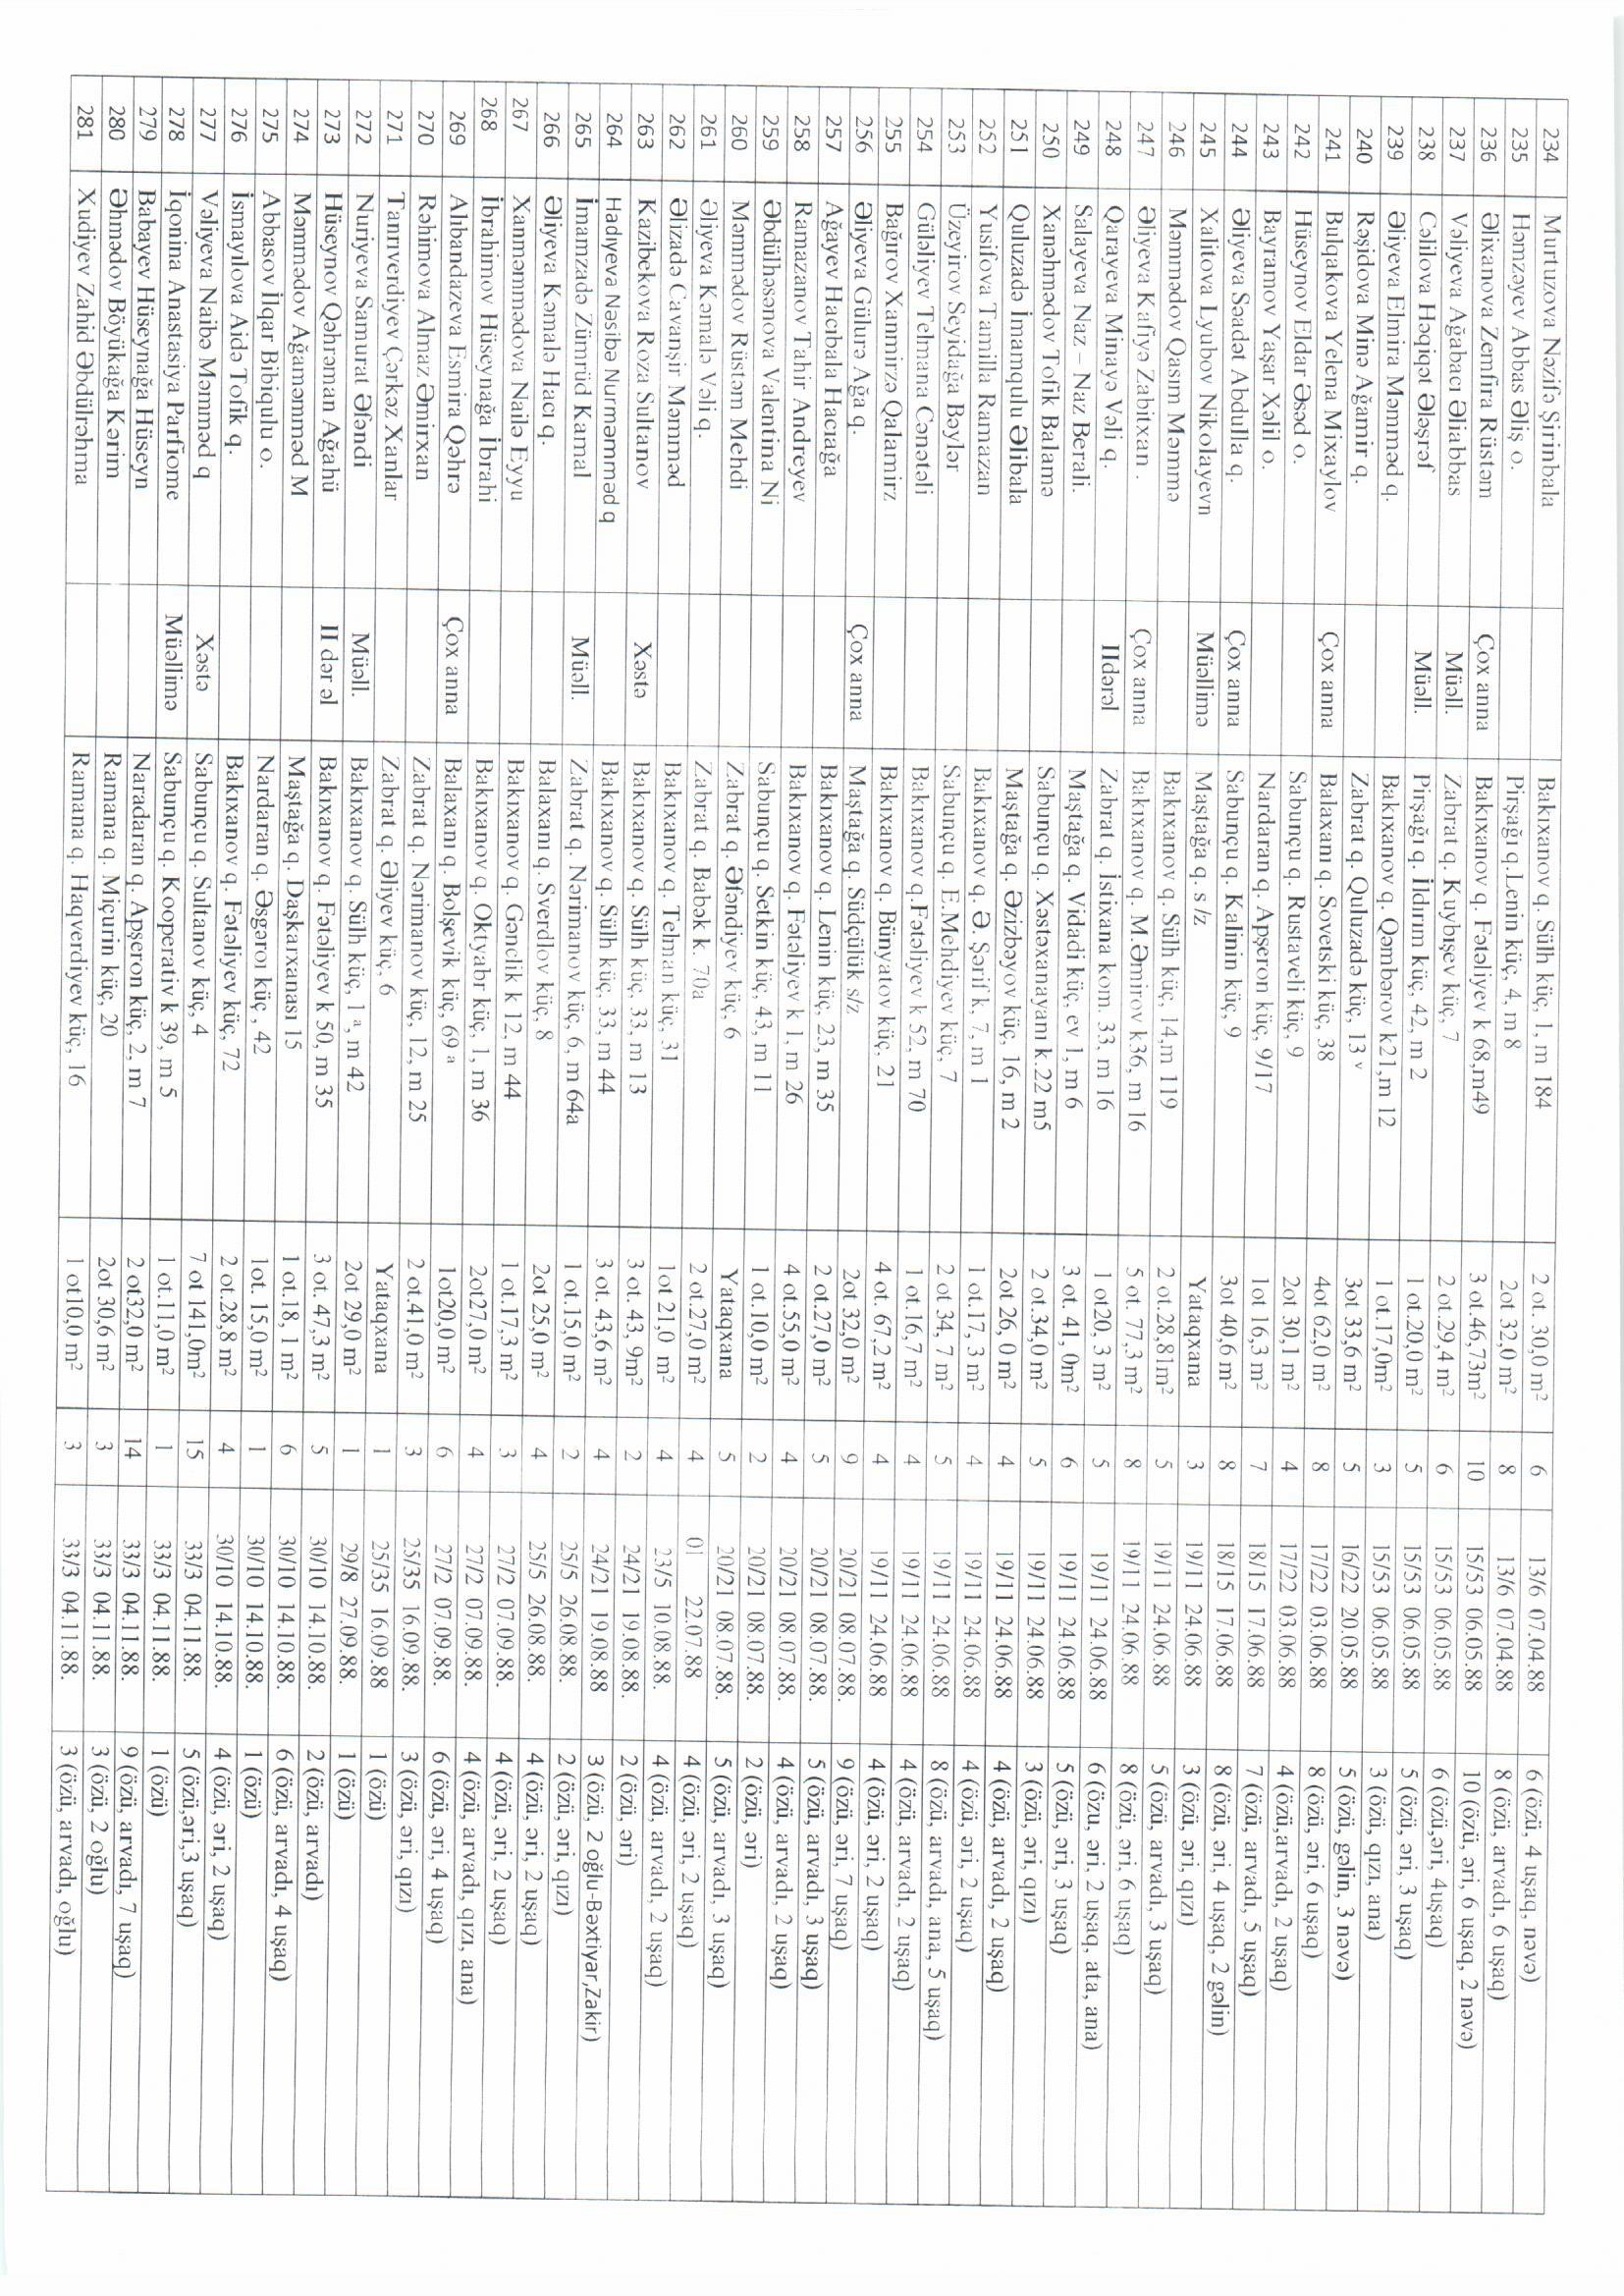 234 Murtuzova Nəzifə Şirinbala Bakıxanov q. Sülh küç, 1, m 184 2 ot. 30,0 m² 6 13/6 07.04.88 6 (özü, 4 uşaq, nəvə)
235 Həmzəyev Abbas Əliş o. Pirşağı q.Lenin küç, 4, m 8 2ot 32,0 m² 8 13/6 07.04.88 8 (özü, arvadı, 6 uşaq)
236 Əlixanova Zemfira Rüstəm Çox anna Bakıxanov q. Fətəliyev k 68,m49 3 ot.46,73m² 10 15/53 06.05.88 10 (özü, əri, 6 uşaq, 2 nəvə)
237 Vəliyeva Ağabacı Əliabbas Müəll. Zabrat q. Kuybışev küç, 7 2 ot.29,4 m² 6 15/53 06.05.88 6 (özü,əri, 4uşaq)
238 Cəlilova Həqiqət Ələşrəf Müəll. Pirşağı q. İldırım küç, 42, m 2 1 ot.20,0 m² 5 15/53 06.05.88 5 (özü, əri, 3 uşaq)
239 Əliyeva Elmira Məmməd q. Bakıxanov q. Qəmbərov k21,m 12 1 ot.17,0m² 3 15/53 06.05.88 3 (özü, qızı, ana)
240 Rəşidova Minə Ağamir q. Zabrat q. Quluzadə küç, 13 ᵛ 3ot 33,6 m² 5 16/22 20.05.88 5 (özü, gəlin, 3 nəvə)
241 Bulqakova Yelena Mixaylov Çox anna Balaxanı q. Sovetski küç, 38 4ot 62,0 m² 8 17/22 03.06.88 8 (özü, əri, 6 uşaq)
242 Hüseynov Eldar Əsəd o. Sabunçu q. Rustaveli küç, 9 2ot 30,1 m² 4 17/22 03.06.88 4 (özü,arvadı, 2 uşaq)
243 Bayramov Yaşar Xəlil o. Nardaran q. Apşeron küç, 9/17 1ot 16,3 m² 7 18/15 17.06.88 7 (özü, arvadı, 5 uşaq)
244 Əliyeva Səadət Abdulla q. Çox anna Sabunçu q. Kalinin küç, 9 3ot 40,6 m² 8 18/15 17.06.88 8 (özü, əri, 4 uşaq, 2 gəlin)
245 Xalitova Lyubov Nikolayevn Müəllimə Maştağa q. s /z Yataqxana 3 19/11 24.06.88 3 (özü, əri, qızı)
246 Məmmədov Qasım Məmmə Bakıxanov q. Sülh küç, 14,m 119 2 ot.28,81m² 5 19/11 24.06.88 5 (özü, arvadı, 3 uşaq)
247 Əliyeva Kafiyə Zabitxan . Çox anna Bakıxanov q. M.Əmirov k36, m 16 5 ot. 77,3 m² 8 19/11 24.06.88 8 (özü, əri, 6 uşaq)
248 Qarayeva Minayə Vəli q. IIdərəl Zabrat q. İstixana kom. 33, m 16 1 ot20, 3 m² 5 19/11 24.06.88 6 (özu, əri, 2 uşaq, ata, ana)
249 Salayeva Naz – Naz Berali. Maştağa q. Vidadi küç, ev 1, m 6 3 ot. 41, 0m² 6 19/11 24.06.88 5 (özü, əri, 3 uşaq)
250 Xanəhmədov Tofik Balamə Sabunçu q. Xəstəxanayanı k.22 m5 2 ot.34,0 m² 5 19/11 24.06.88 3 (özü, əri, qızı)
251 Quluzadə İmamqulu Əlibala Maştağa q. Əzizbəyov küç, 16, m 2 2ot 26, 0 m² 4 19/11 24.06.88 4 (özü, arvadı, 2 uşaq)
252 Yusifova Tamilla Ramazan Bakıxanov q. Ə. Şərif k, 7, m 1 1 ot.17, 3 m² 4 19/11 24.06.88 4 (özü, əri, 2 uşaq)
253 Üzeyirov Seyidağa Bəylər Sabunçu q. E.Mehdiyev küç, 7 2 ot 34, 7 m² 5 19/11 24.06.88 8 (özü, arvadı, ana, 5 uşaq)
254 Güləliyev Telmana Cənətəli Bakıxanov q.Fətəliyev k 52, m 70 1 ot.16,7 m² 4 19/11 24.06.88 4 (özü, arvadı, 2 uşaq)
255 Bağırov Xanmirzə Qələmirz Bakıxanov q. Bünyatov küç, 21 4 ot. 67,2 m² 4 19/11 24.06.88 4 (özü, əri, 2 uşaq)
256 Əliyeva Gülurə Ağa q. Çox anna Maştağa q. Südçülük s/z 2ot 32,0 m² 9 20/21 08.07.88. 9 (özü, əri, 7 uşaq)
257 Ağayev Hacıbala Hacıağa Bakıxanov q. Lenin küç, 23, m 35 2 ot.27,0 m² 5 20/21 08.07.88. 5 (özü, arvadı, 3 uşaq)
258 Ramazanov Tahir Andreyev Bakıxanov q. Fətəliyev k 1, m 26 4 ot.55,0 m² 4 20/21 08.07.88. 4 (özü, arvadı, 2 uşaq)
259 Əbdülhəsənova Valentina Ni Sabunçu q. Setkin küç, 43, m 11 1 ot.10,0 m² 2 20/21 08.07.88. 2 (özü, əri)
260 Məmmədov Rüstəm Mehdi Zabrat q. Əfəndiyev küç, 6 Yataqxana 5 20/21 08.07.88. 5 (özü, arvadı, 3 uşaq)
261 Əliyeva Kəmalə Vəli q. Zabrat q. Babək k. 70a 2 ot.27,0 m² 4 01 22.07.88 4 (özü, əri, 2 uşaq)
262 Əlizadə Cavanşir Məmməd Bakıxanov q. Telman küç, 31 1ot 21,0 m² 4 23/5 10.08.88. 4 (özü, arvadı, 2 uşaq)
263 Kazibekova Roza Sultanov Xəstə Bakıxanov q. Sülh küç, 33, m 13 3 ot. 43, 9m² 2 24/21 19.08.88. 2 (özü, əri)
264 Hadıyeva Nəsibə Nurməmməd q Bakıxanov q. Sülh küç, 33, m 44 3 ot. 43,6 m² 4 24/21 19.08.88 3 (özü, 2 oğlu-Bəxtiyar,Zakir)
265 İmamzadə Zümrüd Kamal Müəll. Zabrat q. Nərimanov küç, 6, m 64a 1 ot.15,0 m² 2 25/5 26.08.88. 2 (özü, əri, qızı)
266 Əliyeva Kəmalə Hacı q. Balaxanı q. Sverdlov küç, 8 2ot 25,0 m² 4 25/5 26.08.88. 4 (özü, əri, 2 uşaq)
267 Xanməmmədova Nailə Eyyu Bakıxanov q. Gənclik k 12, m 44 1 ot.17,3 m² 3 27/2 07.09.88. 4 (özü, əri, 2 uşaq)
268 İbrahimov Hüseynağa İbrahi Bakıxanov q. Oktyabr küç, 1, m 36 2ot27,0 m² 4 27/2 07.09.88. 4 (özü, arvadı, qızı, ana)
269 Alıbandazeva Esmira Qəhrə Çox anna Balaxanı q. Bolşevik küç, 69 ᵃ 1ot20,0 m² 6 27/2 07.09.88. 6 (özü, əri, 4 uşaq)
270 Rəhimova Almaz Əmirxan Zabrat q. Nərimanov küç, 12, m 25 2 ot.41,0 m² 3 25/35 16.09.88. 3 (özü, əri, qızı)
271 Tanrıverdiyev Çərkəz Xanlar Zabrat q. Əliyev küç, 6 Yataqxana 1 25/35 16.09.88 1 (özü)
272 Nuriyeva Samurat Əfəndi Müəll. Bakıxanov q. Sülh küç, 1 ᵃ, m 42 2ot 29,0 m² 1 29/8 27.09.88. 1 (özü)
273 Hüseynov Qəhrəman Ağahü II dər əl Bakıxanov q. Fətəliyev k 50, m 35 3 ot. 47,3 m² 5 30/10 14.10.88. 2 (özü, arvadı)
274 Məmmədov Ağaməmməd M Maştağa q. Daşkarxanası 15 1 ot.18, 1 m² 6 30/10 14.10.88. 6 (özü, arvadı, 4 uşaq)
275 Abbasov İlqar Bibiqulu o. Nardaran q. Əsgəroı küç , 42 1ot. 15,0 m² 1 30/10 14.10.88. 1 (özü)
276 İsmayılova Aidə Tofik q. Bakıxanov q. Fətəliyev küç, 72 2 ot.28,8 m² 4 30/10 14.10.88. 4 (özü, əri, 2 uşaq)
277 Vəliyeva Naibə Məmməd q Xəstə Sabunçu q. Sultanov küç, 4 7 ot 141,0m² 15 33/3 04.11.88. 5 (özü,əri,3 uşaq)
278 İqonina Anastasiya Parfiome Müəllimə Sabunçu q. Kooperativ k 39, m 5 1 ot.11,0 m² 1 33/3 04.11.88. 1 (özü)
279 Babayev Hüseynağa Hüseyn Naradaran q. Apşeron küç, 2, m 7 2 ot32,0 m² 14 33/3 04.11.88. 9 (özü, arvadı, 7 uşaq)
280 Əhmədov Böyükağa Kərim Ramana q. Miçurin küç, 20 2ot 30,6 m² 3 33/3 04.11.88. 3 (özü, 2 oğlu)
281 Xudiyev Zahid Əbdülrəhma Ramana q. Haqverdiyev küç, 16 1 ot10,0 m² 3 33/3 04.11.88. 3 (özü, arvadı, oğlu)